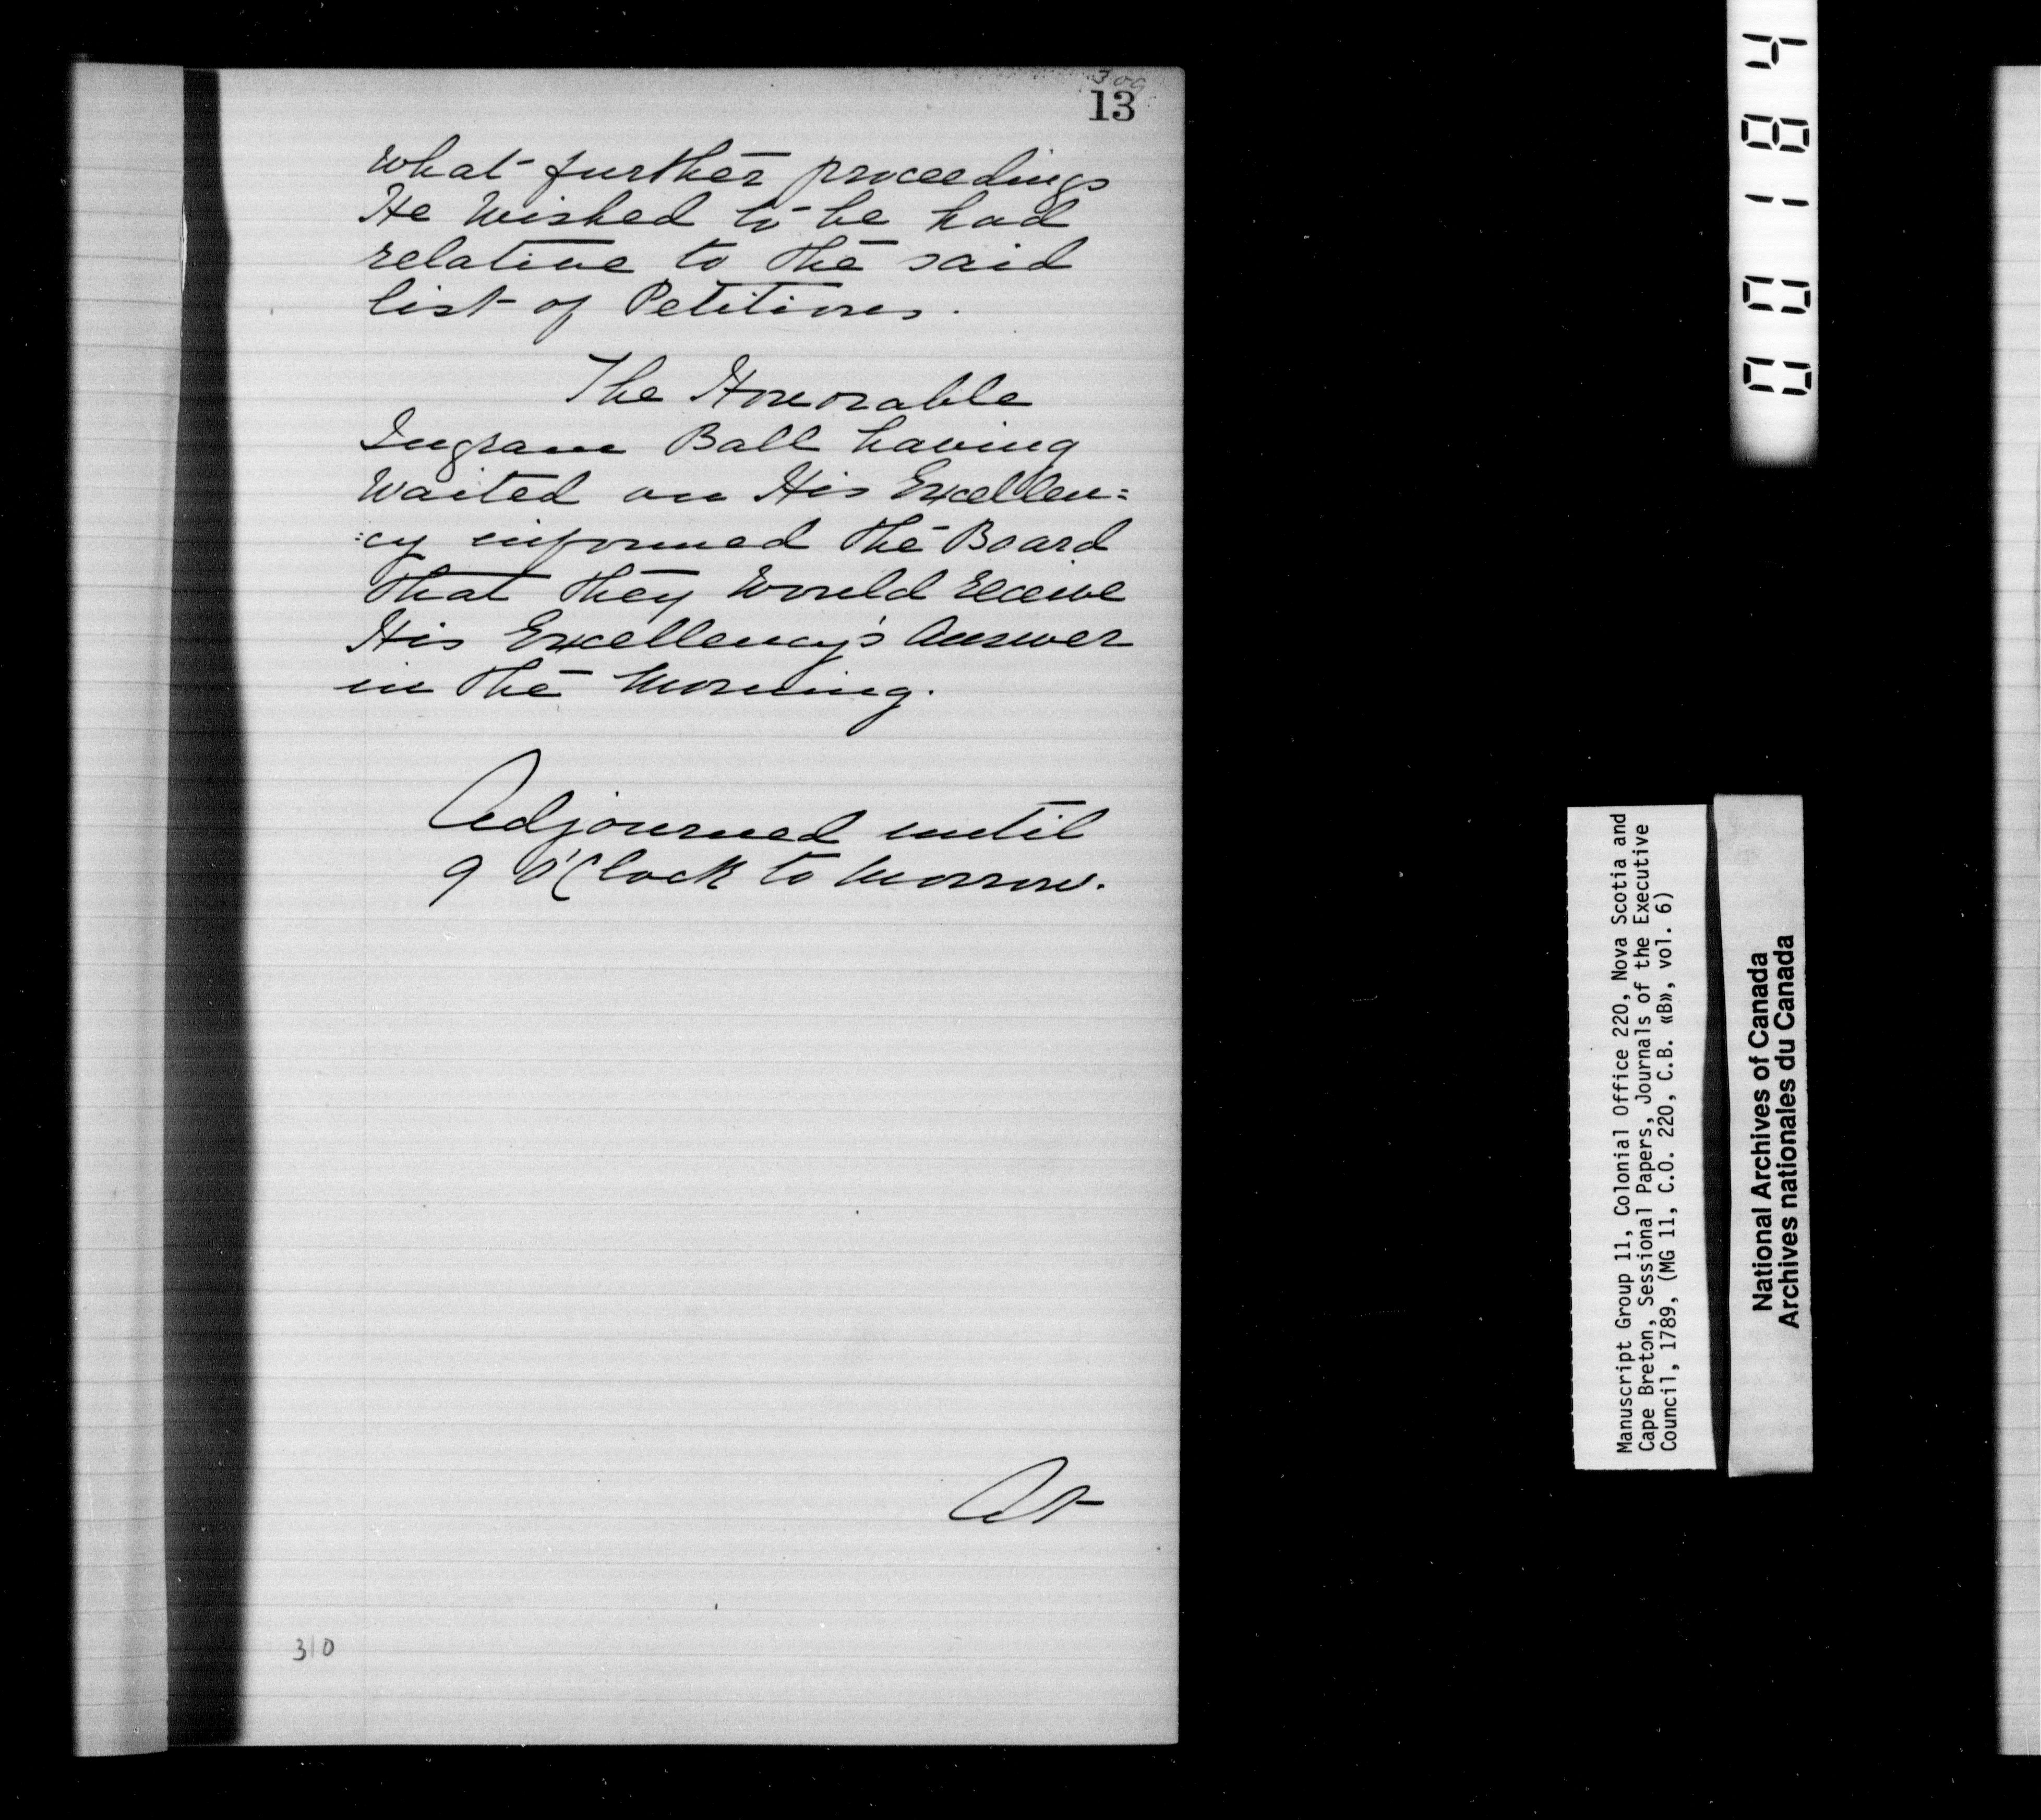 309
13
what further proceedings
He wished to be had
relative to the said
list of Petitions.
The Honorable
Ingram Ball having
waited on His Excellen=
:cy informed the Board
that they would receive
His Excellency's answer
in the morning.
Adjourned until
9 O'Clock to morrow.
At
310
00184
Manuscript Group 11, Colonial Office 220, Nova Scotia and
Cape Breton, Sessional Papers, Journals of the Executive
Council, 1789, (MG 11, C.O. 220, C.B. «B», vol. 6)
National Archives of Canada
Archives nationales du Canada